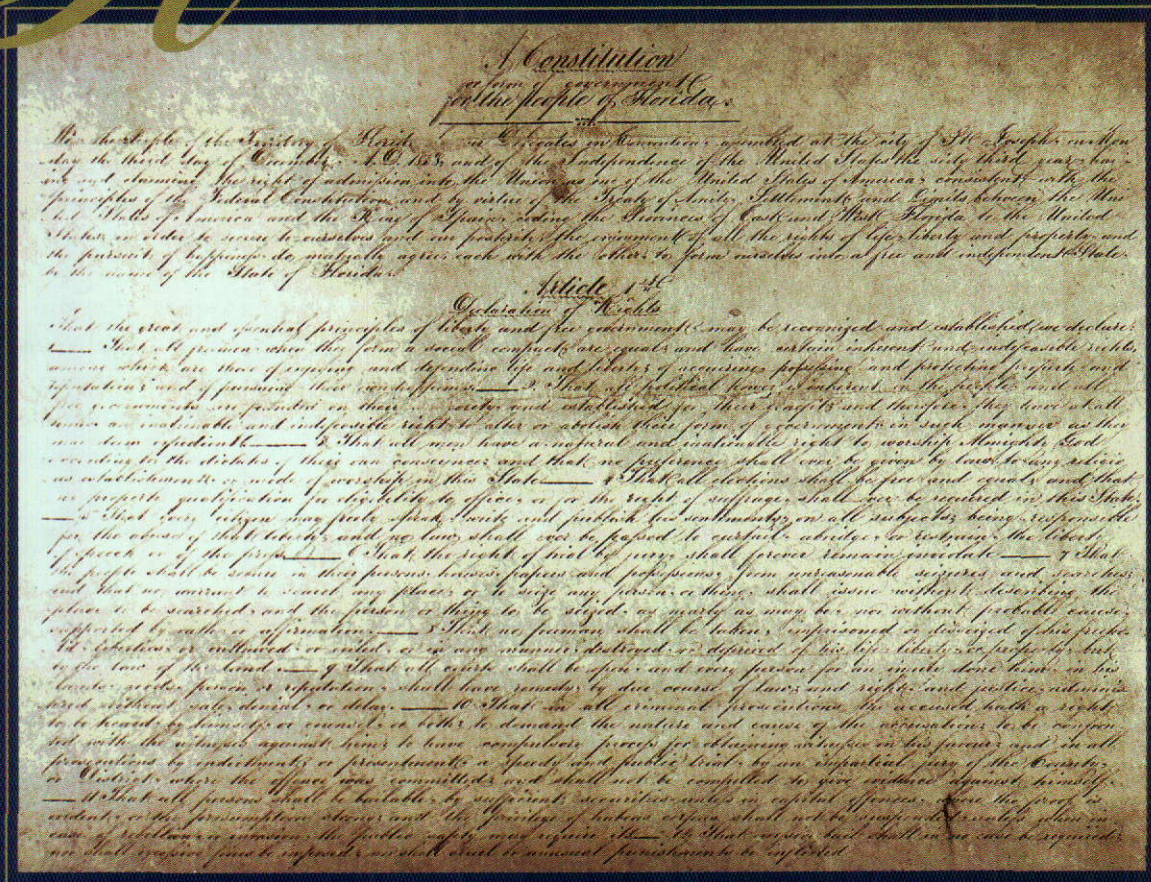 A Constitution
or form of government
for the people of Florida.
We the people of the Territory of Florida by our Delegates in Convention assembled at the city of St. Joseph on Mon
day the third day of December A.D. 1838 and of the Independence of the United States the sixty third year hav
ing and claiming the right of admission into the Union as one of the United States of America, consistent with the
principles of the Federal Constitution and by virtue of the Treaty of Amity, Settlement and Limits between the Uni
ted States of America and the King of Spain, ceding the Provinces of East and West Florida to the United
States, in order to secure to ourselves and our posterity the enjoyment of all the rights of life, liberty and property and
the pursuit of happiness, do mutually agree, each with the other to form ourselves into a free and independent State
by the name of the State of Florida.
Article 1st
Declaration of Rights
That the great and essential principles of liberty and free government may be recognized and established, we declare:
1 That all freemen when they form a social compact are equal; and have certain inherent and indefeasible rights
among which are those of enjoying and defending life and liberty; of acquiring, possessing and protecting property and
reputation; and of pursuing their own happiness 2 That all political power is inherent in the people and all
free governments are founded on their authority and established for their benefit; and therefore, they have at all
times an inalienable and indefeasible right to alter or abolish their form of government in such manner as they
may deem expedient 3 That all men have a natural and inalienable right to worship Almighty God
according to the dictates of their own conscience; and that no preference shall ever be given by law to any religio
us establishment or mode of worship in this State 4 That all elections shall be free and equal; and that
no property qualification for eligibility to office or for the right of suffrage shall ever be required in this State
5 That every citizen may freely speak, write and publish his sentiments on all subjects; being responsible
for the abuse of that liberty; and no law shall ever be passed to curtail, abridge, or restrain the liberty
of speech or of the press 6 That the right of trial by jury shall forever remain inviolate 7 That
the people shall be secure in their persons, houses, papers and possessions from unreasonable seizures and searches;
and that no warrant to search any place or to seize any person or thing shall issue without describing the
place to be searched and the person or thing to be seized as nearly as may be, nor without probable cause
supported by oath or affirmation 8 That no freeman shall be taken, imprisoned or disseized of his freehold
liberties or outlawed or exiled or in any manner destroyed or deprived of his life, liberty or property but
by the law of the land 9 That all courts shall be open and every person for an injury done him in his
lands, goods, person or reputation shall have remedy by due course of law; and right and justice adminis
tered without sale, denial or delay 10 That in all criminal prosecutions the accused hath a right
to be heard by himself or counsel, or both; to demand the nature and cause of the accusation; to be confront
ed with the witnesses against him; to have compulsory process for obtaining witnesses in his favour; and in all
prosecutions by indictment or presentment a speedy and public trial by an impartial jury of the County
or District where the offence was committed; and shall not be compelled to give evidence against himself
11 That all persons shall be bailable by sufficient securities unless in capital offenses where the proof is
evident or the presumption strong; and the privilege of habeas corpus shall not be suspended unless when in
case of rebellion or invasion the public safety may require it 12 That excessive bail shall in no case be required;
nor shall excessive fines be imposed; nor shall cruel or unusual punishments be inflicted